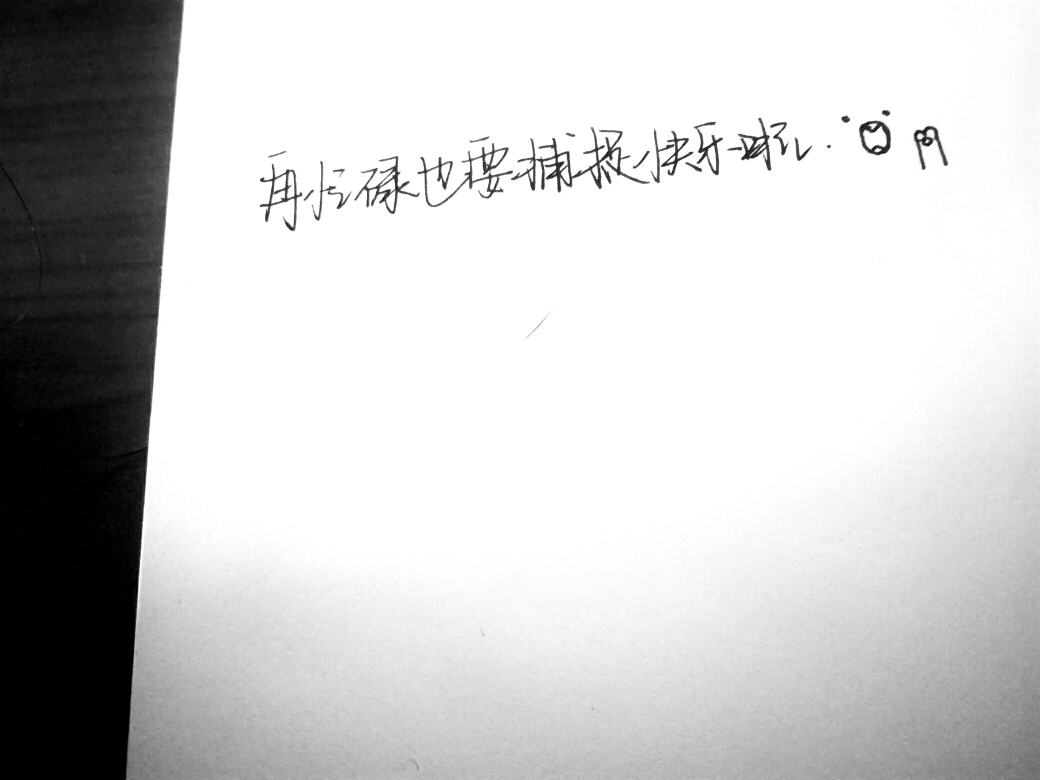 再忙碌也要捕捉快乐哦.